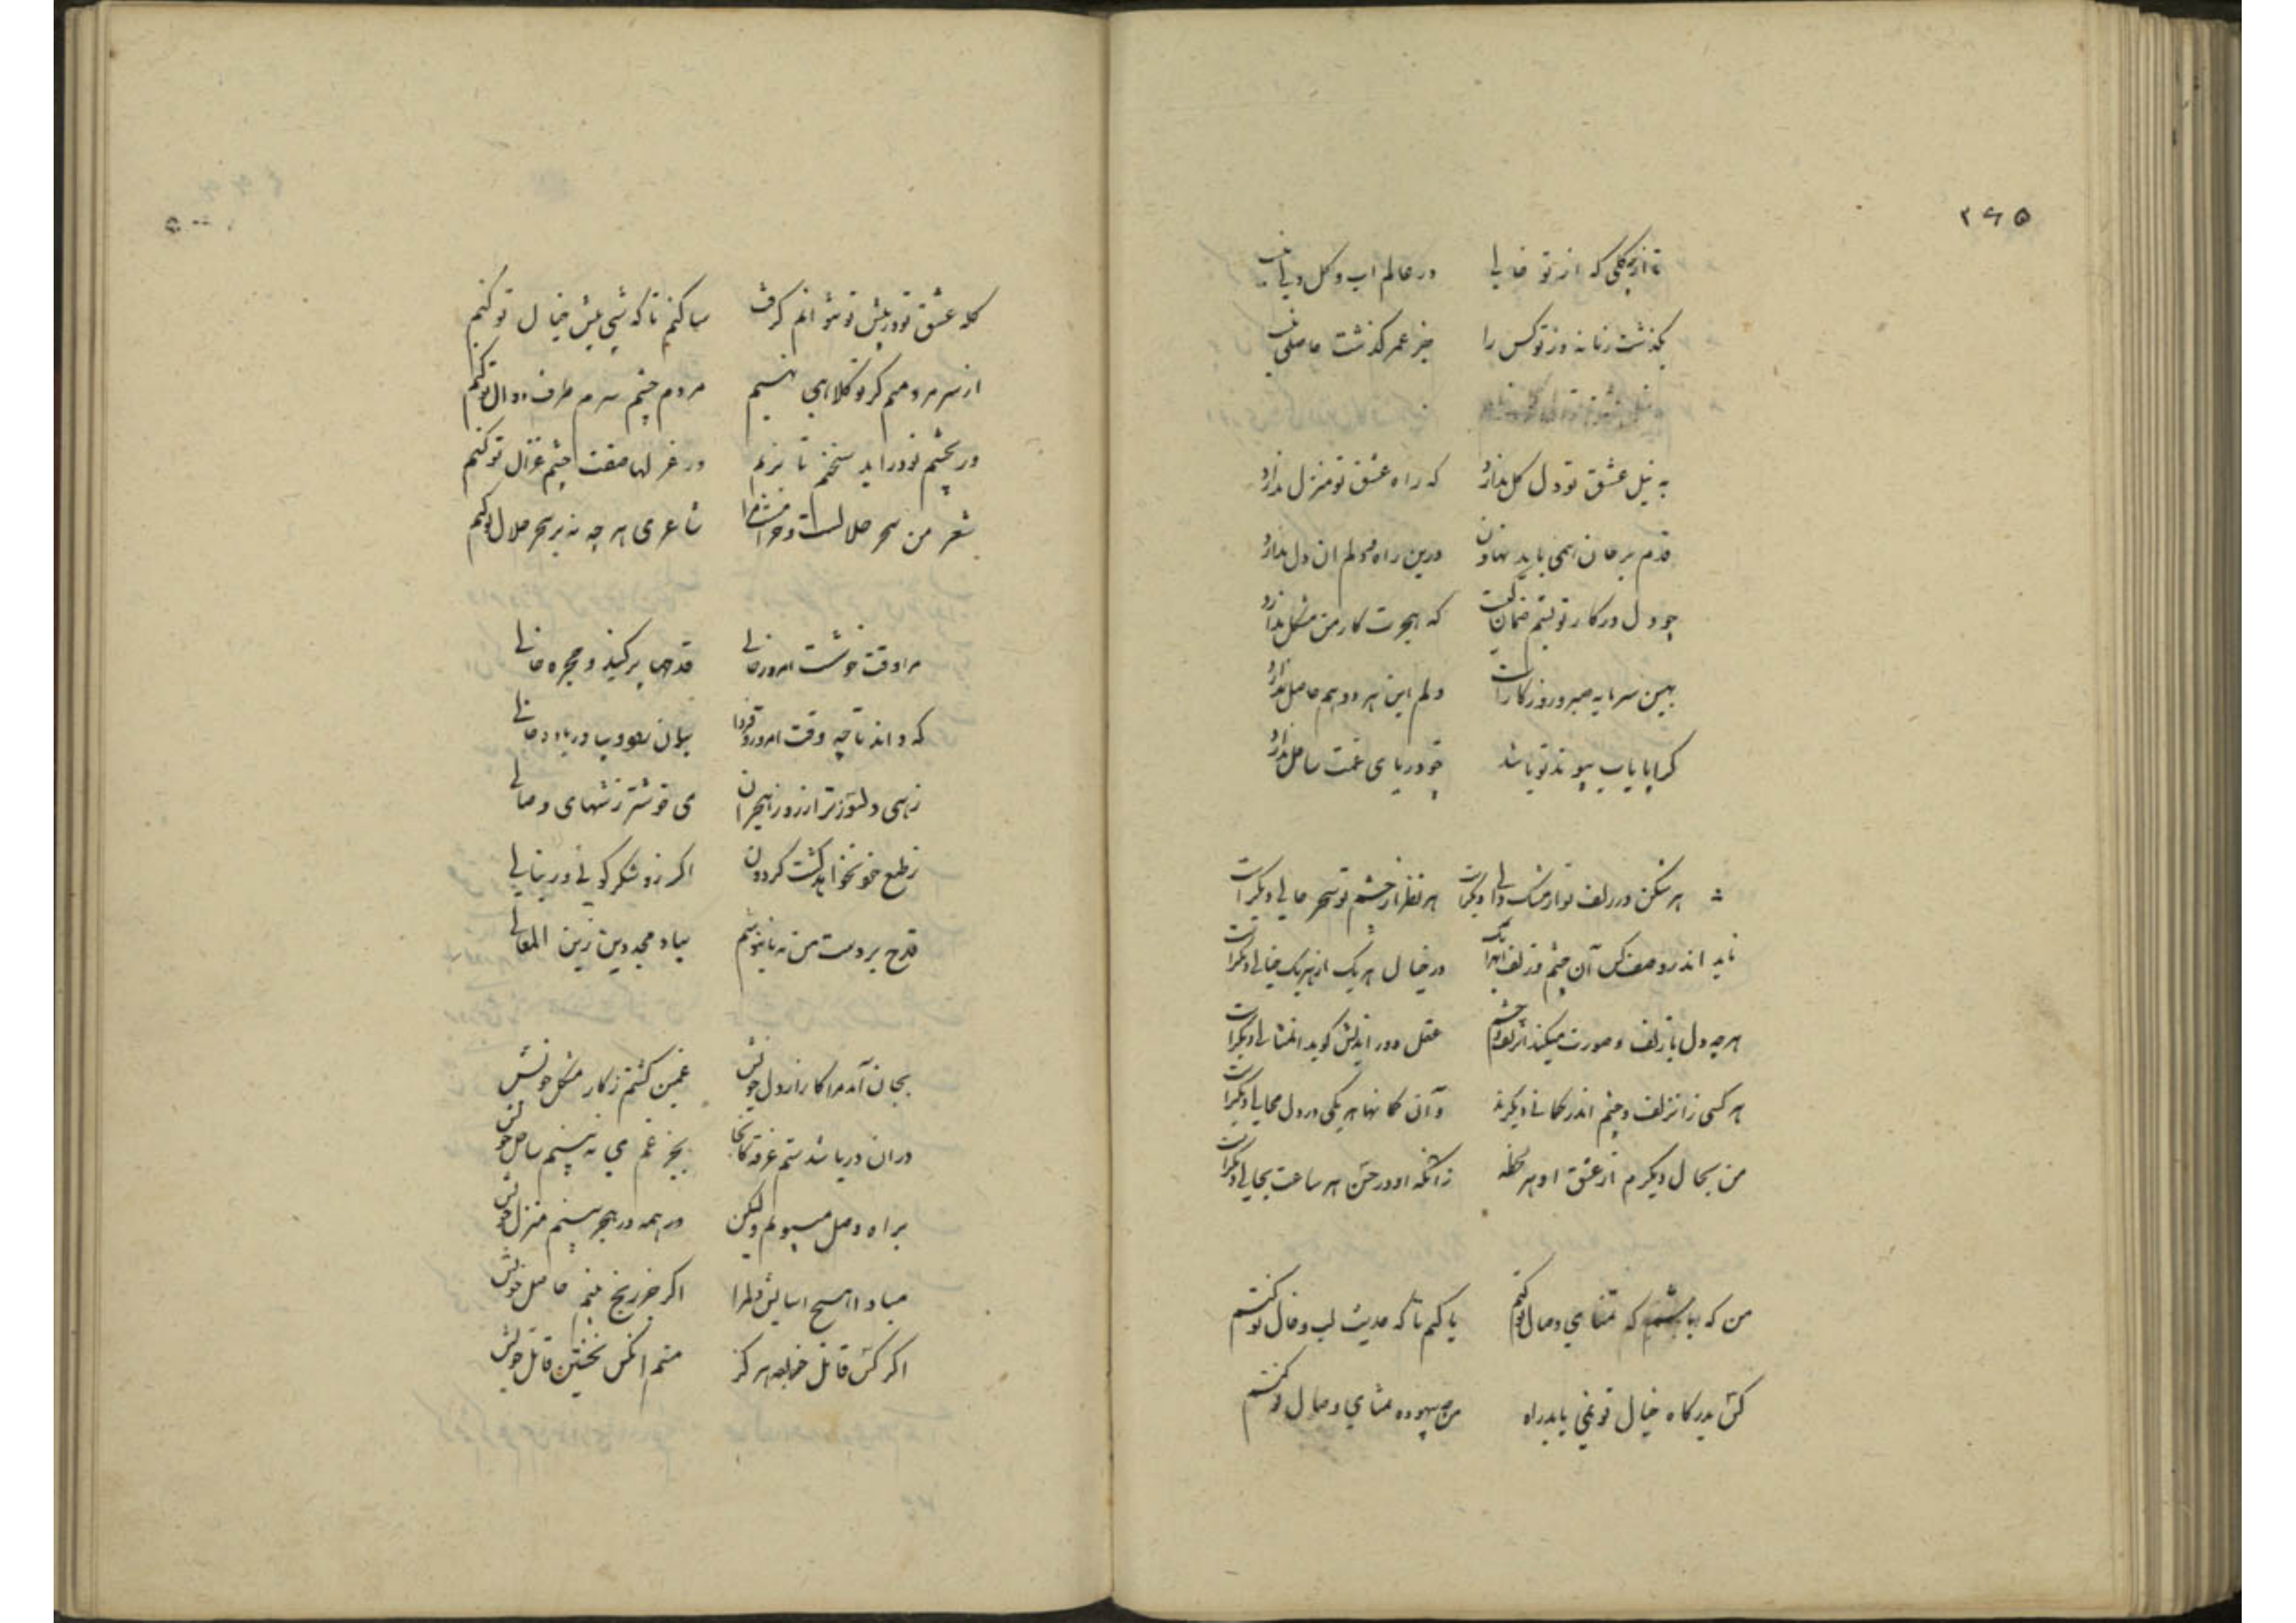 ۲۶۵
تا از چکلی که از تو خالی در عالم اب و کل دلی نیست
بگذشت زمانه وز تو کس را جز عمر گذشت حاصلی نیست
به نیل عشق تو دل کل ندارد که راه عشق تو منزل ندارد
قدم بر جان همی باید نهادن درین راه و دلم ان دل ندارد
چو دل در کار تو بستم ضمان کیست که هجرت کار من مشکل ندارد
بهین سرمایه صبر و روزگار است دلم این هر دو هم حاصل ندارد
کرا پایاب پیوند تو باشد چو دریای غمت ساحل ندارد
هر شکن در زلف تو از مشک دالی دیگر است هر نظر از چشم تو سحر حالی دیگر است
ناید اندر وصف کس آن چشم و زلف در خیال هر یک از هر یک خیالی دیگر است
هر چه دل با زلف و صورت میکند عقل دور اندیش گوید ان مثالی دیگر است
هر کسی زان زلف و چشم اندر گمانی دیگرند و آن گمانها هر یکی در دل محالی دیگر است
من بحال دیگرم از عشق او هر لحظه زانکه او در حسن هر ساعت بحالی دیگر است
من که باشم که تمنای وصال تو کنم یا کیم تا که حدیث لب و خال تو کنم
کس بدرگاه خیال تو نمی یابد راه من بیهوده تمنای وصال تو کنم
۵۰۰
گله عشق تو در پیش تو نتوانم کرد ساکنم تا که شبی پیش خیال تو کنم
از سر مردمی ار گرد کلاهی نهیم مردم چشم سرم طرف دوال تو کنم
ور بچشم تو دراید سخنم تا بزیم در غزلها صفت چشم غزال تو کنم
شعر من سحر حلالست و شاعری هر چه نه بر سحر حلال تو کنم
مرا وقت خوشست امروز حالی قدحها پر کنید و حجره خالی
که داند تا چه وقت امروز و فردا
زهی دلسوزتر از روز هجران می خوشتر ز شبهای وصالی
ز طبع خود نخواهد گشت گردون اگر زو شکر گوئی ور بنالی
قدح بر دست من نه تا بنوشم بیاد مجد دین زین المعالی
بجان آمد مرا کار از دل خویش غمین گشتم ز کار مشکل خویش
دران دریا شدستم غرقه کانجا بجز غم می نه بینم ساحل خویش
براه وصل میپویم ولیکن همه در هجر بینم منزل خویش
مبادا هیچ اسایش دلم را اگر جز رنج بینم حاصل خویش
اگر کس قاتل خود بود هرگز منم انکس نخستین قاتل خویش